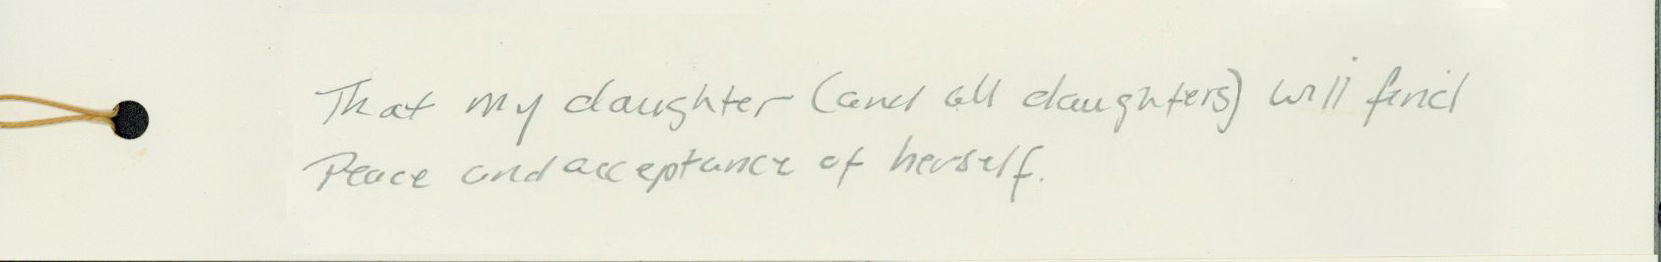 That my daughter (and all daughters) will find
Peace and acceptance of herself.